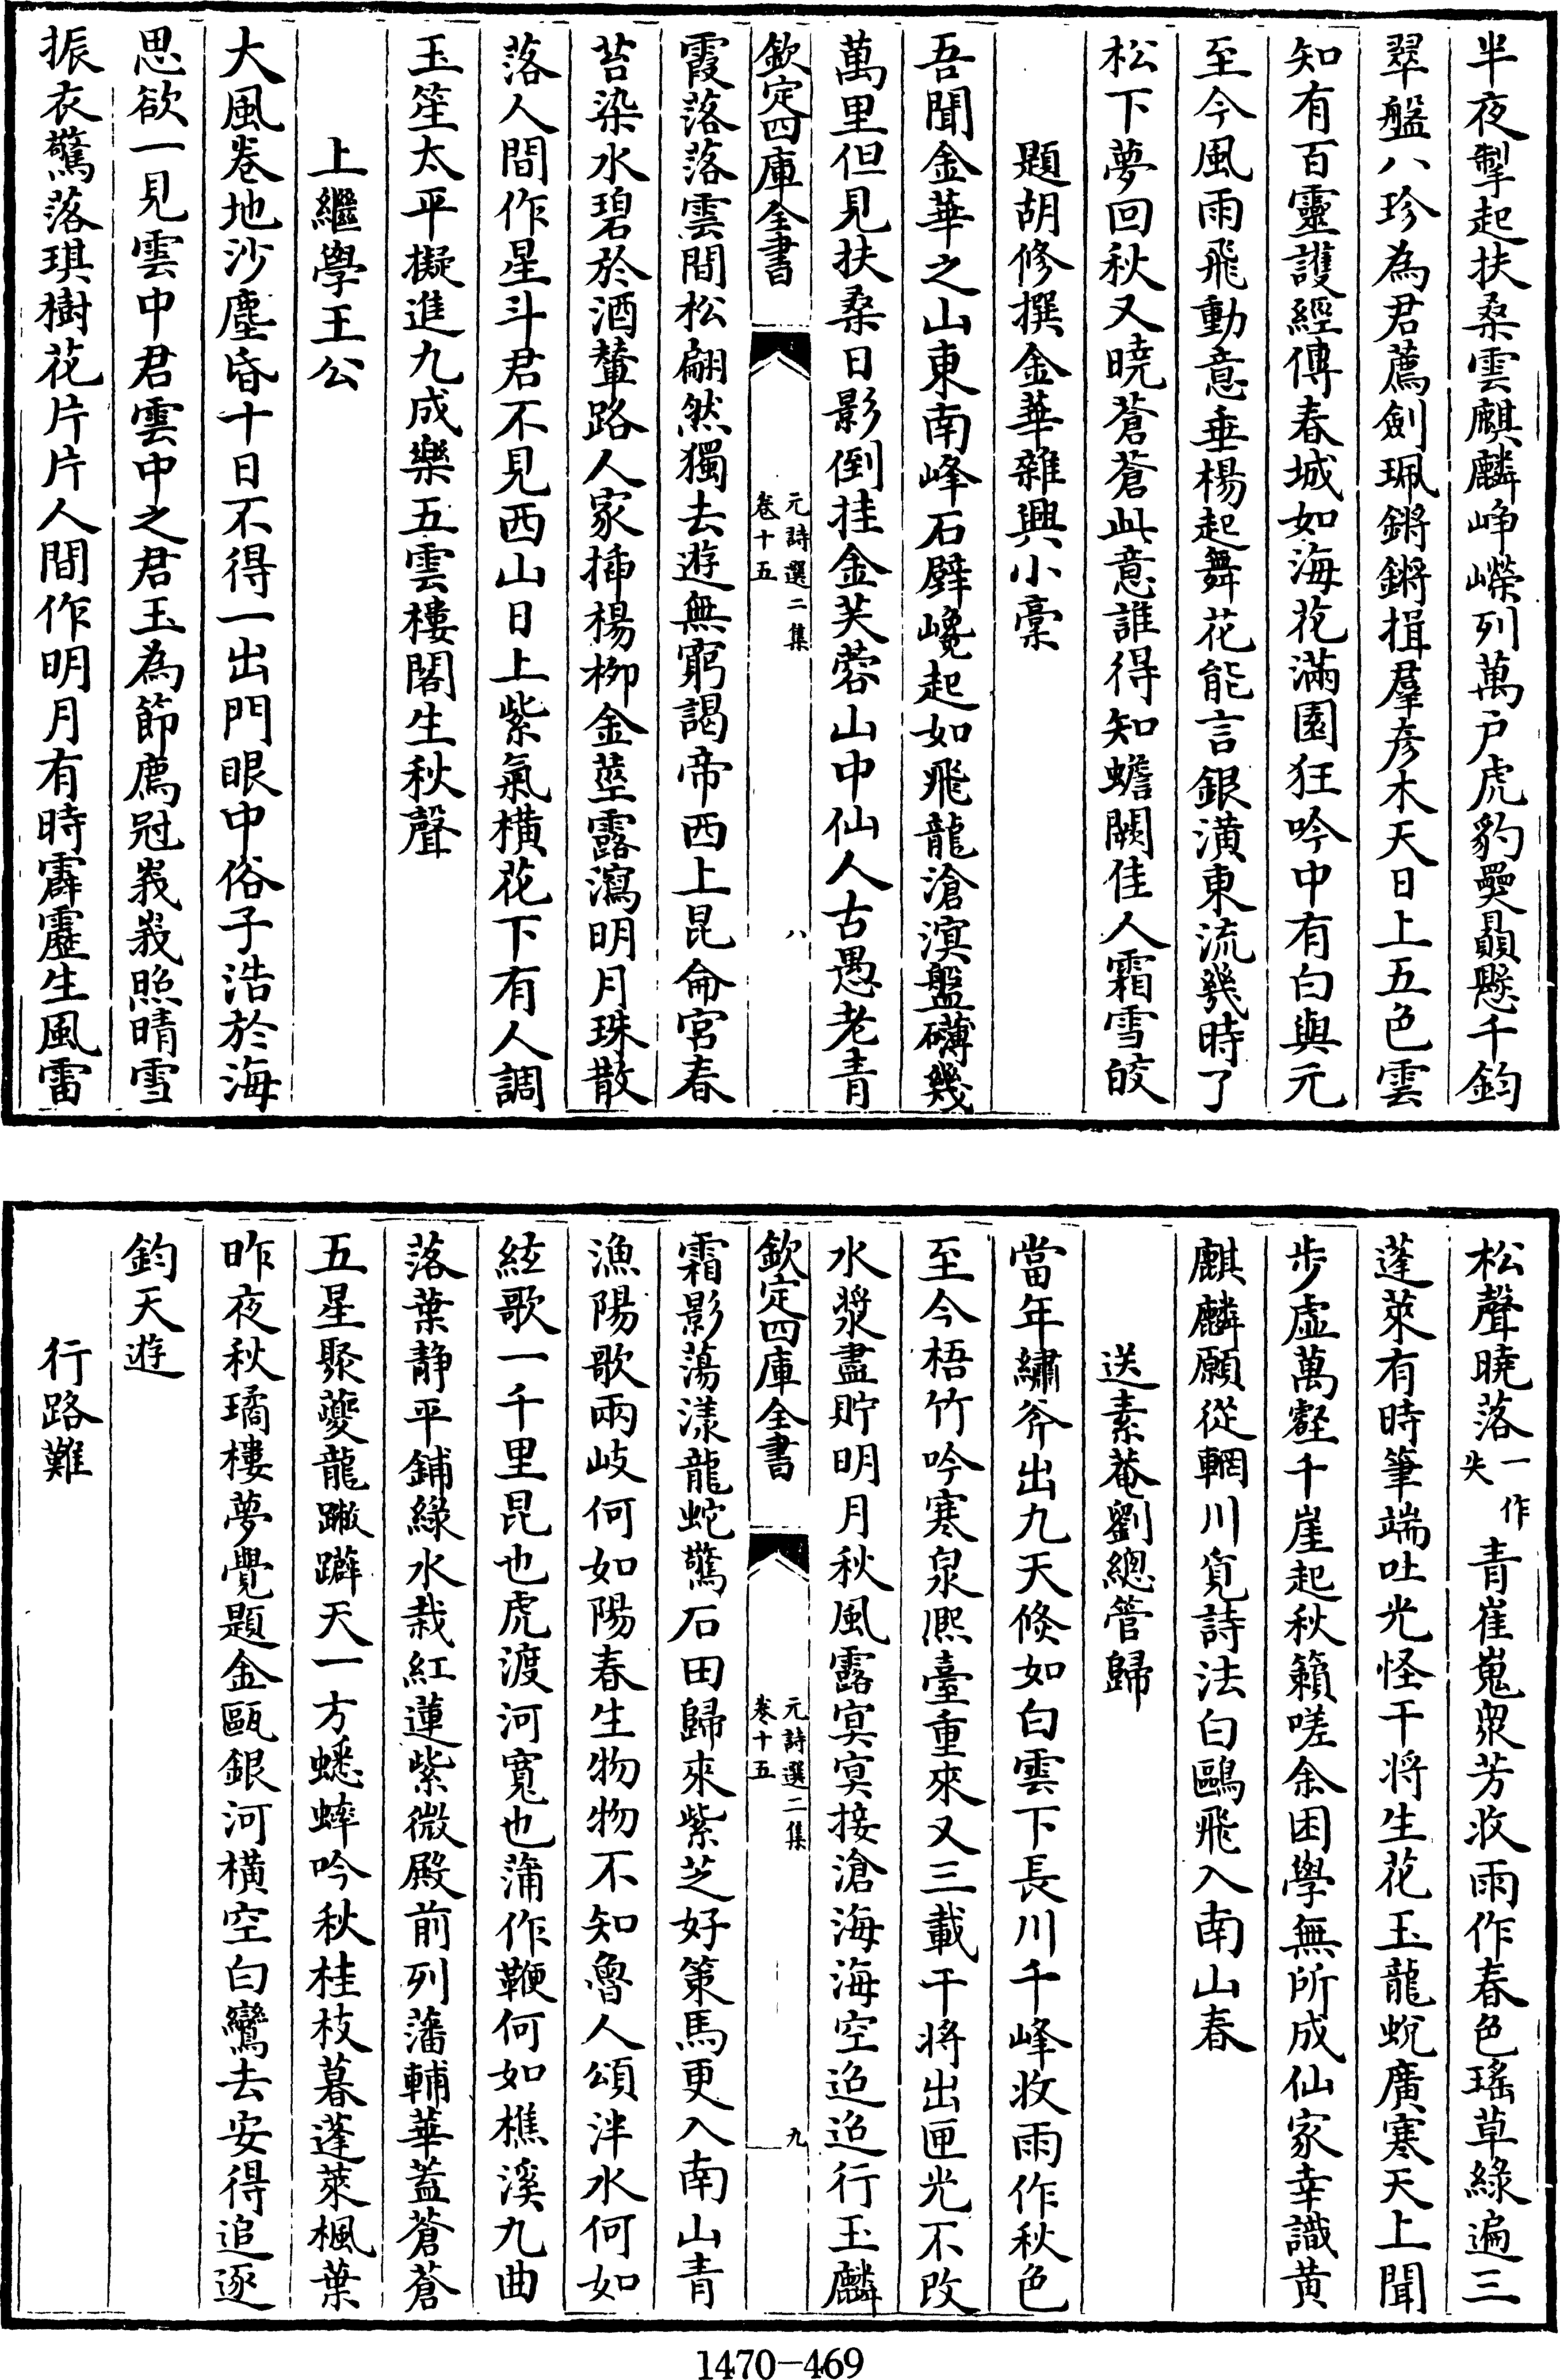 半夜掣起扶桑雲麒麟峥嶸列萬户虎豹㬪贔懸千鈞
翠盤八珍為君薦劍珮鏘鏘揖羣彦木天日上五色雲
知有百靈護經傳春城如海花滿園狂吟中有白與元
至今風雨飛動意垂楊起舞花能言銀潢東流幾時了
松下夢回秋又曉蒼蒼此意誰得知蟾闕佳人霜雪皎
題胡修撰金華雜興小稾
吾聞金華之山東南峰石壁巉起如飛龍滄溟盤礴幾
萬里但見扶桑日影倒挂金芙蓉山中仙人古愚老青
欽定四庫全書
元詩選二集
卷十五
八
霞落落雲間松翩然獨去遊無窮謁帝西上昆侖宮春
苔染水碧於酒輦路人家插楊柳金莖露瀉明月珠散
落人間作星斗君不見西山日上紫氣横花下有人調
玉笙太平擬進九成樂五雲樓閣生秋聲
上繼學王公
大風卷地沙塵昏十日不得一出門眼中俗子浩於海
思欲一見雲中君雲中之君玉為節廌冠峩峩照晴雪
振衣驚落琪樹花片片人間作明月有時霹靂生風雷
松聲曉落一作失青崔嵬衆芳收雨作春色瑤草綠遍三
蓬萊有時筆端吐光怪干将生花玉龍蛻廣寒天上聞
步虛萬壑千崖起秋籟嗟余困學無所成仙家幸識黄
麒麟願從輞川覓詩法白鷗飛入南山春
送素菴劉總管歸
當年繡斧出九天倐如白雲下長川千峰收雨作秋色
至今梧竹吟寒泉熈臺重來又三載干将出匣光不改
水漿盡貯明月秋風露冥冥接滄海海空迢迢行玉麟
欽定四庫全書
元詩選二集
卷十五
九
霜影蕩漾龍蛇驚石田歸來紫芝好策馬更入南山青
漁陽歌兩岐何如陽春生物物不知魯人頌泮水何如
絃歌一千里昆也虎渡河寬也蒲作鞭何如樵溪九曲
落葉静平鋪綠水栽紅蓮紫微殿前列藩輔華蓋蒼蒼
五星聚夔龍蹴躃天一方蟋蟀吟秋桂枝暮蓬萊楓葉
昨夜秋璚樓夢覺題金甌銀河横空白鸞去安得追逐
鈞天遊
行路難
1470-469